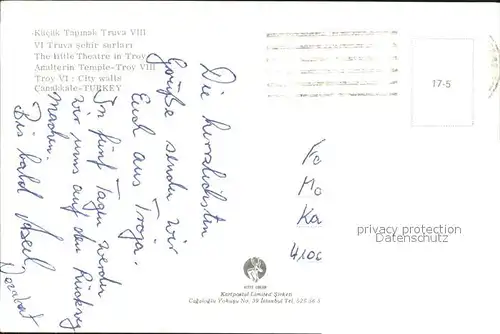 Küçük Tapınak Truva VIII
VI Truva şehir surları
The little Theatre in Troy
Analterin Temple-Troy VIII
Troy VI : City walls
Çanakkale-TURKEY
Die herzlichsten
Grüße senden wir
Euch aus Troja.
In fünf Tagen werden
wir uns auf den Rückweg
machen.
Bis bald
17-5
Fa
Mo
Ka
4100
privacy protection
Datenschutz
Kartpostal Limited Şirketi
Cağaloğlu Yokuşu No: 39 İstanbul Tel. 528 36 5